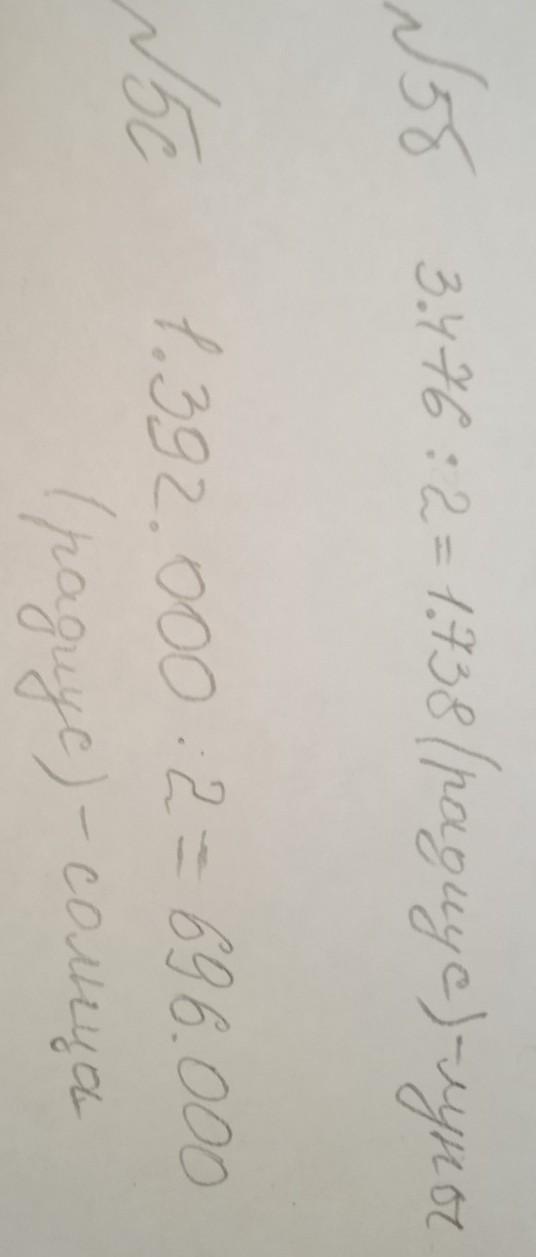 №5б 3.476 : 2 = 1.738 (радиус) - луны
№5с 1.392.000 : 2 = 696.000
(радиус) - солнца